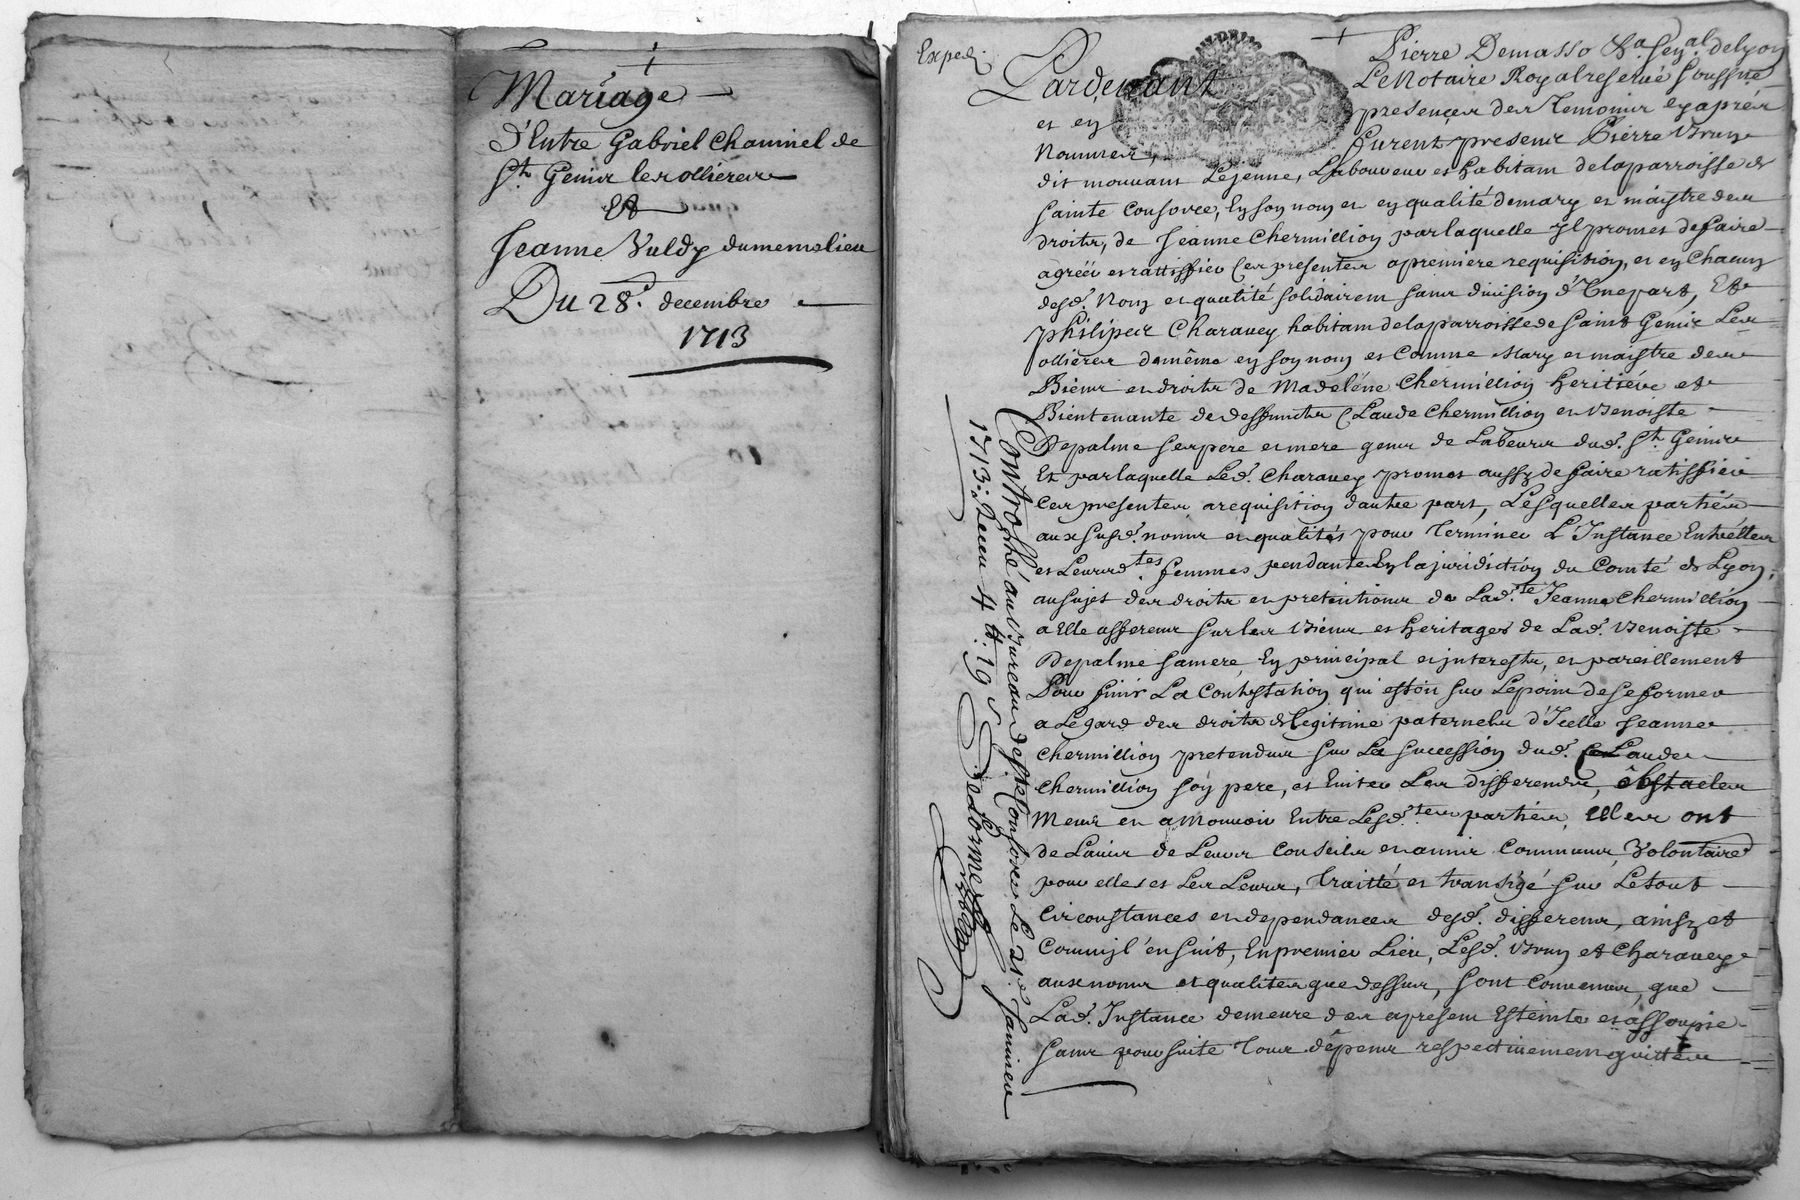 Mariage
d'Entre Gabriel Chaninel de
St. Genis les ollieres
Et
Jeanne Vuldy dumemelieu
Du 28e. decembre
1713
Exped.
Pierre Demasso Sa. Seyal. delyon
Pardevant
LeNotaire Royal reservé Soussné
et en
presences des Temoins cy apres
Nommes,
furent presens Pierre Brun
dit mouvans Lejeune, Laboureur et habitans delaparroisse de
Sainte Consorce, en son nom et en qualité demary et maistre des
droits, de Jeanne Chermillion par laquelle jl promet defaire
agréér et rattiffier ces presentes a premiere requisition, et en Chacun
desd. Noms et qualité solidairem sans division d'Une part, Et
philiper Charavey habitans delaparroisse de Saint Genis Les
ollieres de même en son nom et Comme Mary et maistre des
Biens et droits de Madeléne Chermillion heritiére et
Bientenante de deffuncts Claude Chermillion et Benoiste
Depalme ses pere et mere gens de Labeurs dud. St. Genis
Et par laquelle Led. Charavey promet aussy de faire ratiffier
Ces presentes a requisition dautre part, Lesquelles parties
aux susd. noms et qualités pour Terminer L'Instance Entrelles
et Leursdtes. femmes pendante En la juridiction du Comté de Lyon,
au sujet des droits et pretentions de Ladte. Jeanne Chermillion
a Elle afferens sur les Biens et heritages de Lad. Benoiste
Depalme sa mere, En principal et interests, et pareillement
Pour finir La Contestation qui estoit sur Le point de se former
a Legard des droits de legitime paternels d'Icelle Jeanne
Chermillion pretendus sur La succession dud. Claude
Chermillion son pere, et Eviter Les differends, obstacles
Meus et a Mouvoir Entre Lesdtes. parties, Elles ont
de Lavis de Leurs Conseils et amis Communs, Volontaire
pour elles et Les Leurs, Traitté et transigé sur Letout
Circonstances et dependances desd. differens, ainsy et
Comm jl ensuit, En premier Lieu, Lesd. Brun et Charavey
aux noms et qualites que dessus, sont Convenus, que
Lad. Instance demeure des apresent Esteinte et assoupie
sans poursuite Tous dépens respectivement quittes
Controllé au Bureau de Ste Consorce Le 21e. Janvier
1713. Receu 4 ₶. 19 s Delorme